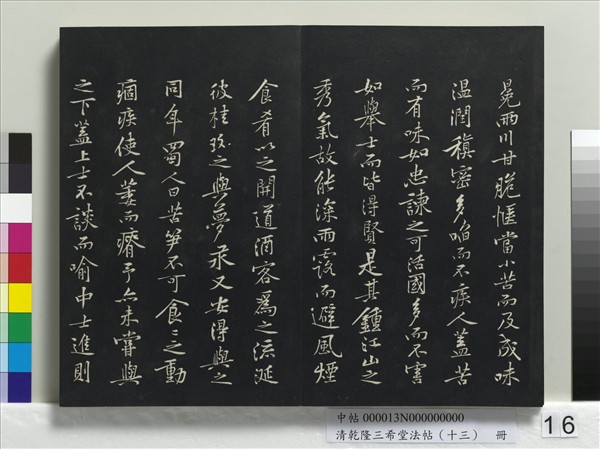 冕兩川甘脆愜當小苦而及成味
溫潤稹密多啗而不疾人蓋苦
而有味如忠諫之可活國多而不害
如舉士而皆得賢是其鍾江山之
秀氣故能深雨露而避風煙
食肴以之開道酒客爲之流涎
彼桂玫之與夢永又安得與之
同年蜀人曰苦笋不可食〻之動
痼疾使人萎而瘠予亦未嘗與
之下蓋上士不談而喻中士進則
中帖 000013N000000000
清乾隆三希堂法帖（十三） 冊
16